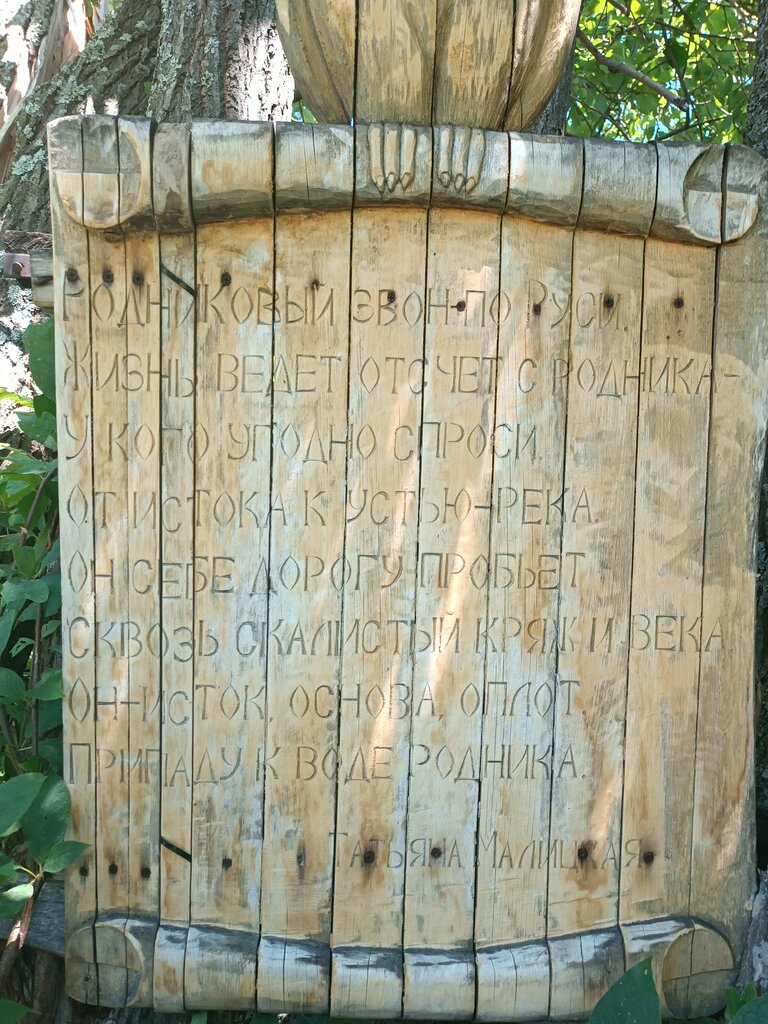 Родниковый звон по Руси.
Жизнь ведет отсчет с родника-
У кого угодно спроси.
От истока к устью-река.
Он себе дорогу пробьет
Сквозь скалистый кряж и века
Он-исток, основа, оплот.
Припаду к воде родника.
Татьяна Малицкая